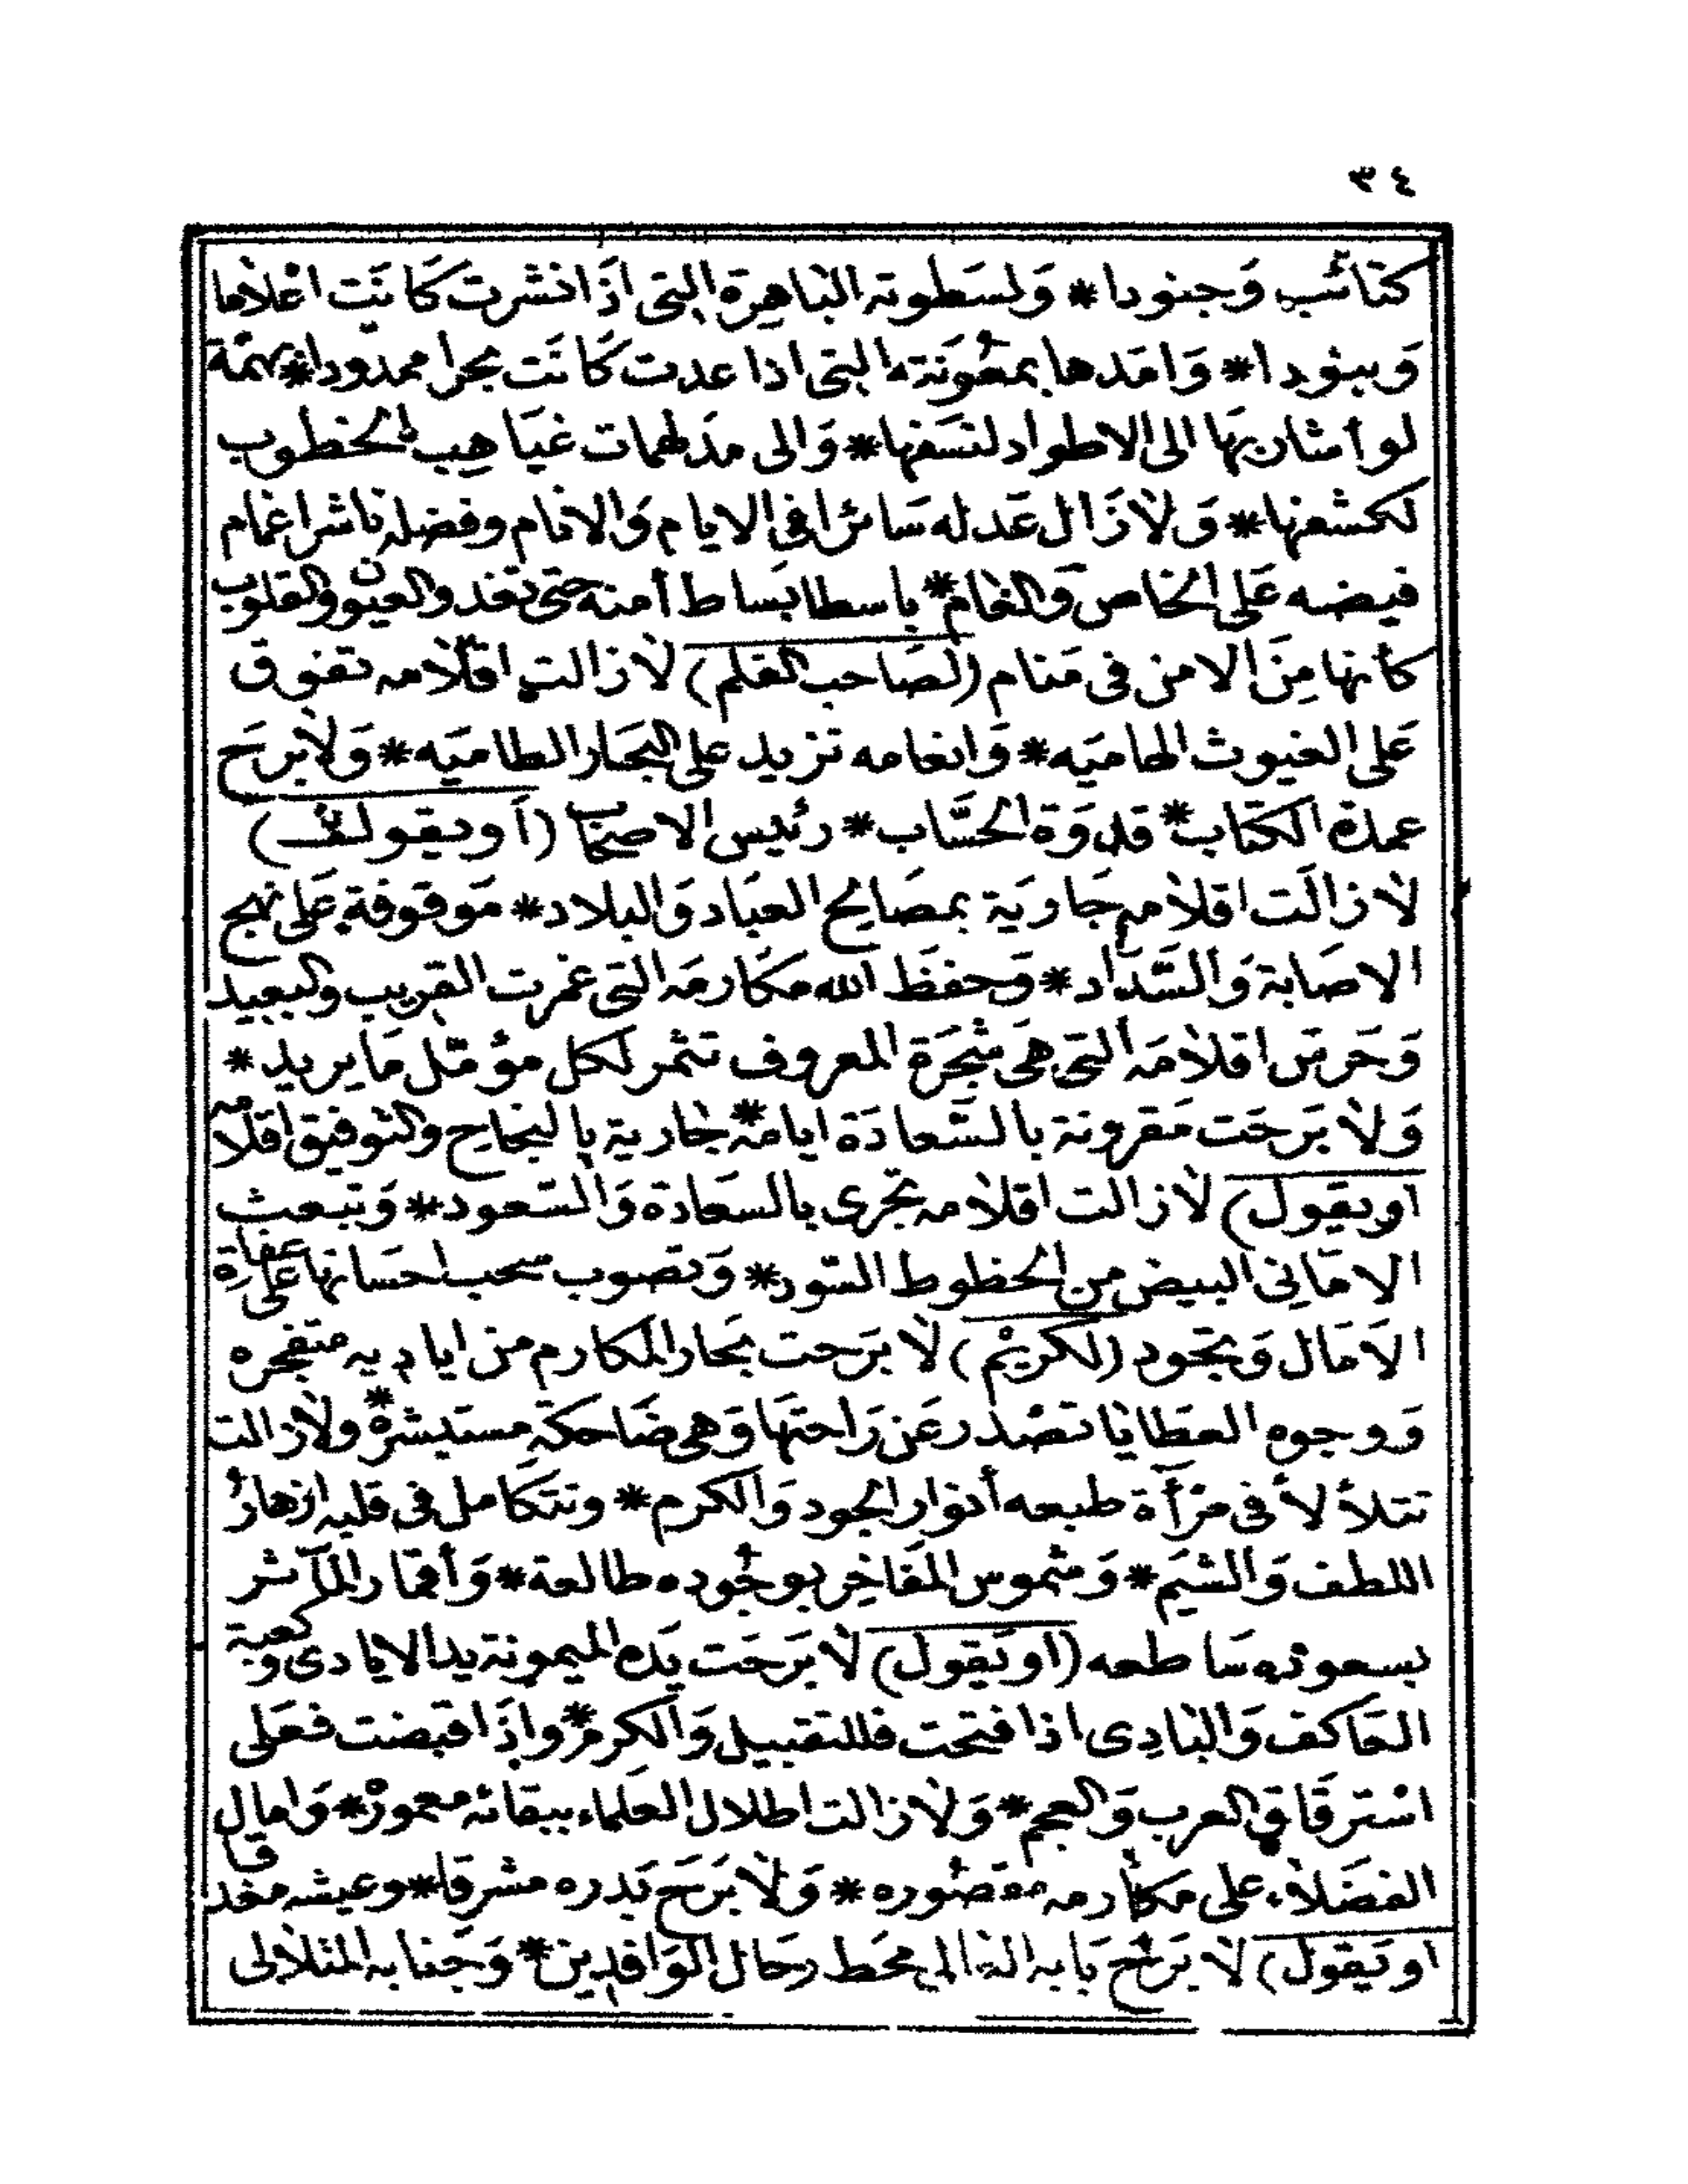 ٣٤
كتائب وَجنودا * وَلسَطوته الباهِرة التى اذَا نشرت كَانَت اعْلاما
وَبنودا * وَامَدها بمعُونَته التى اذا عدت كَانَت بحرا ممدودا * بهمّة
لو أشار بهَا الى الاطواد لنسَفها * وَالى مدَلهمات غيَاهِب الخطوب
لكشفها * وَلَازَال عَدله سَائرا فى الايام وَالانام وفضله ناشرا غمام
فيضه عَلى الخاص وَالعَام * باسطا بسَاط أمنه حتى تغدو العيون والقلوب
كأنها مِنَ الامن فى مَنام (لصَاحب القلم) لَازالت اقلَامه تفوق
عَلى الغيوث الهاميَه * وَانعامه تزيد على البَحار الطاميَه * وَلَابرحَ
عمدة الكتاب * قدوَة الحسَّاب * رئيس الاصحَاب (أو يقول)
لَازالَت اقلَامه جَاريَة بمصَالح العبَاد وَالبلاد * مَوقوفة عَلى نهج
الاصَابة وَالسَّدَاد * وَحفظَ الله مكَارمَه التى غمرت القريب والبعيد
وَحَرسَ اقلَامَه التى هى شجَرَة المعروف تثمر لكل مؤمّل مَا يريد *
وَلَا بَرحَت مَقرونة بالسَّعادَة ايامه * جَارية بالنجاح والتوفيق اقلامه
(او يقول) لَازالت اقلَامه تجرى بالسَعَادة وَالسّعود * وَتبعث
الامَانى البيض من الحظوط السّود * وَتصَوب سحب احسَانها عَلى عفاة
الآمَال وَتجود (لكريْم) لَا بَرحت بحَار المكارم من اياديه متفجره
وَوجوه العطَايا تصْدر عَن رَاحتهَا وَهى ضَاحكة مستبشرة * ولَازالت
تتلألأ فى مرْآة طبعه أنوار الجود وَالكرم * وتتكَامل فى قلبه ازهار
اللطف وَالشيَم * وَشموس المفَاخر بوجُوده طالعة * وَأقمَار المآثر
بسعوده سَاطعه (او يَقول) لَا بَرحَت يَده الميمونة يد الايادى وكعبة
العَاكف وَالبَادِى اذا فتحت فللتقبيل وَالكرم * وإذَا قبضت فعَلى
اسْترقَاق العرب وَالعجم * وَلَازالت اطلال العلَماء ببقائه معمورْة * وَامال
الفضَلَاء على مكَارمه مقصُوره * وَلَا بَرَحَ بَدره مشرقا * وعيشه مغدقا
(او يَقول) لَا بَرحَ بَابه العَالى محَط رحَال الوَافدين * وَجَنابه المتلَالى